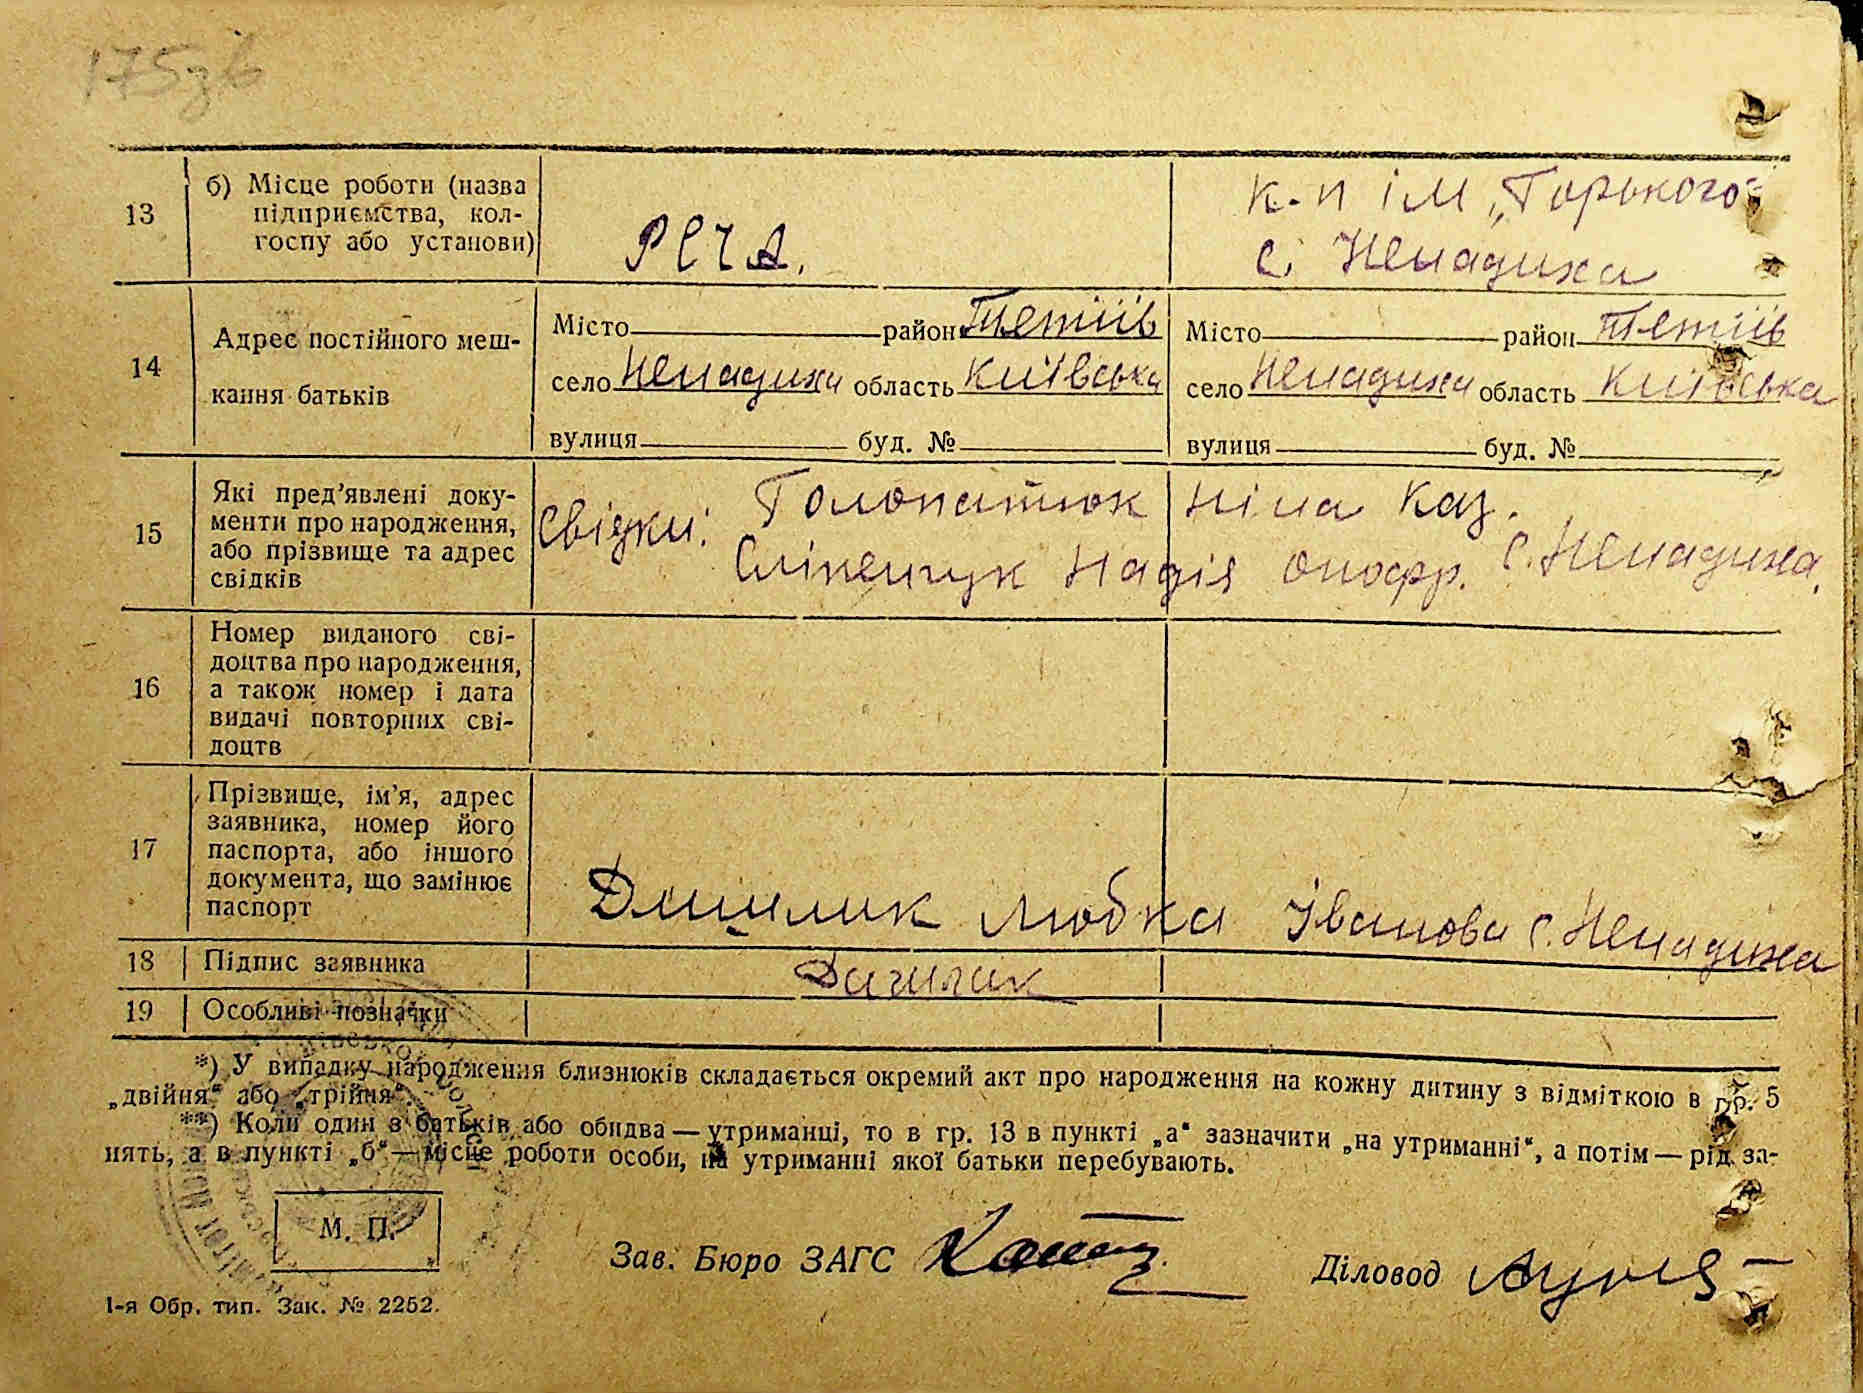 175зв
13
б) Місце роботи (назва
підприємства, кол-
госпу або установи)
РСЧА.
к-п ім „Горького"
с. Ненадиха
14
Адрес постійного меш-
кання батьків
Місто район Тетіїв
село Ненадиха область Київська
вулиця буд. №
Місто район Тетіїв
село Ненадиха область Київська
вулиця буд. №
15
Які пред'явлені доку-
менти про народження,
або прізвище та адрес
свідків
Свідки: Голопатюк Ніна Каз.
Сліпенчук Надія Онофр. с. Ненадиха.
16
Номер виданого сві-
доцтва про народження,
а також номер і дата
видачі повторних сві-
доцтв
17
Прізвище, ім'я, адрес
заявника, номер його
паспорта, або іншого
документа, що замінює
паспорт
Любка Іванова с. Ненадиха
18 Підпис заявника
19 Особливі позначки
*) У випадку народження близнюків складається окремий акт про народження на кожну дитину з відміткою в гр. 5
„двійня" або „трійня".
**) Коли один з батьків або обидва — утриманці, то в гр. 13 в пункті „а" зазначити „на утриманні", а потім — рід за-
нять, а в пункті „б" — місце роботи особи, на утриманні якої батьки перебувають.
М. П.
Зав. Бюро ЗАГС
Діловод
1-я Обр. тип. Зак. № 2252.